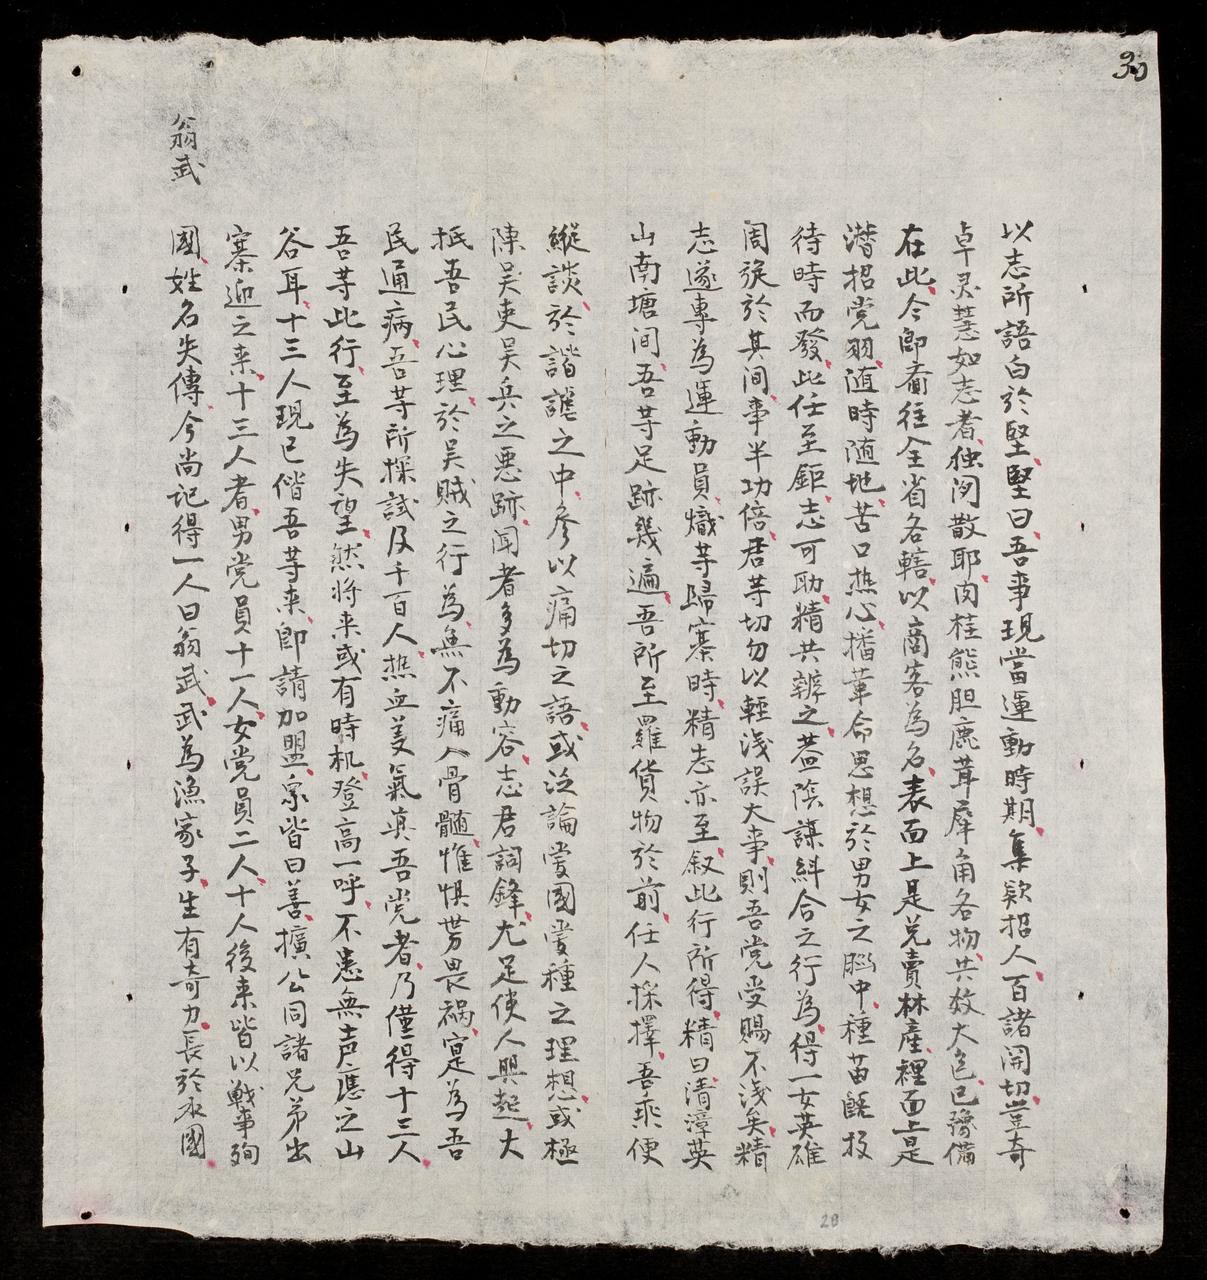 30
以志所語白於堅堅曰吾事現當運動時期集欵招人百諸開切豈奇
卓灵慧如志者独閒散耶肉桂熊胆鹿茸犀角各物共放大色已豫備
在此今即賫往全省各轄以商客為名表面上是兑賣林產裡面上是
潜招党羽随時随地苦口热心播革命思想於男女之脳中種苗既投
待時而發此任至鉅志可助精共辦之葢陰謀糾合之行為得一女英雄
周旋於其间事半功倍君等切勿以輕浅誤大事則吾党受賜不浅矣精
志遂專為運動員熾等歸寨時精志亦至叙此行所得精曰清漳英
山南塘间吾等足跡幾遍吾所至羅貨物於前任人採擇吾乘便
縱談於諧謔之中参以痛切之語或泛論愛國愛種之理想或極
陳吴吏吴兵之悪跡闻者多為動容志君詞鋒尤足使人興起大
抵吾民心理於吴賊之行為無不痛入骨髄惟惧势畏禍寔為吾
民通病吾等所探試及千百人热血美氣真吾党者乃僅得十三人
吾等此行至為失望然将来或有時机登高一呼不患無声應之山
谷耳十三人現已偕吾等来即請加盟衆皆曰善擴公同諸兄弟出
寨迎之来十三人者男党員十一人女党員二人十人後来皆以戰事殉
國姓名失傳今尚記得一人曰翁武武為漁家子生有奇力長於水國
翁武
28